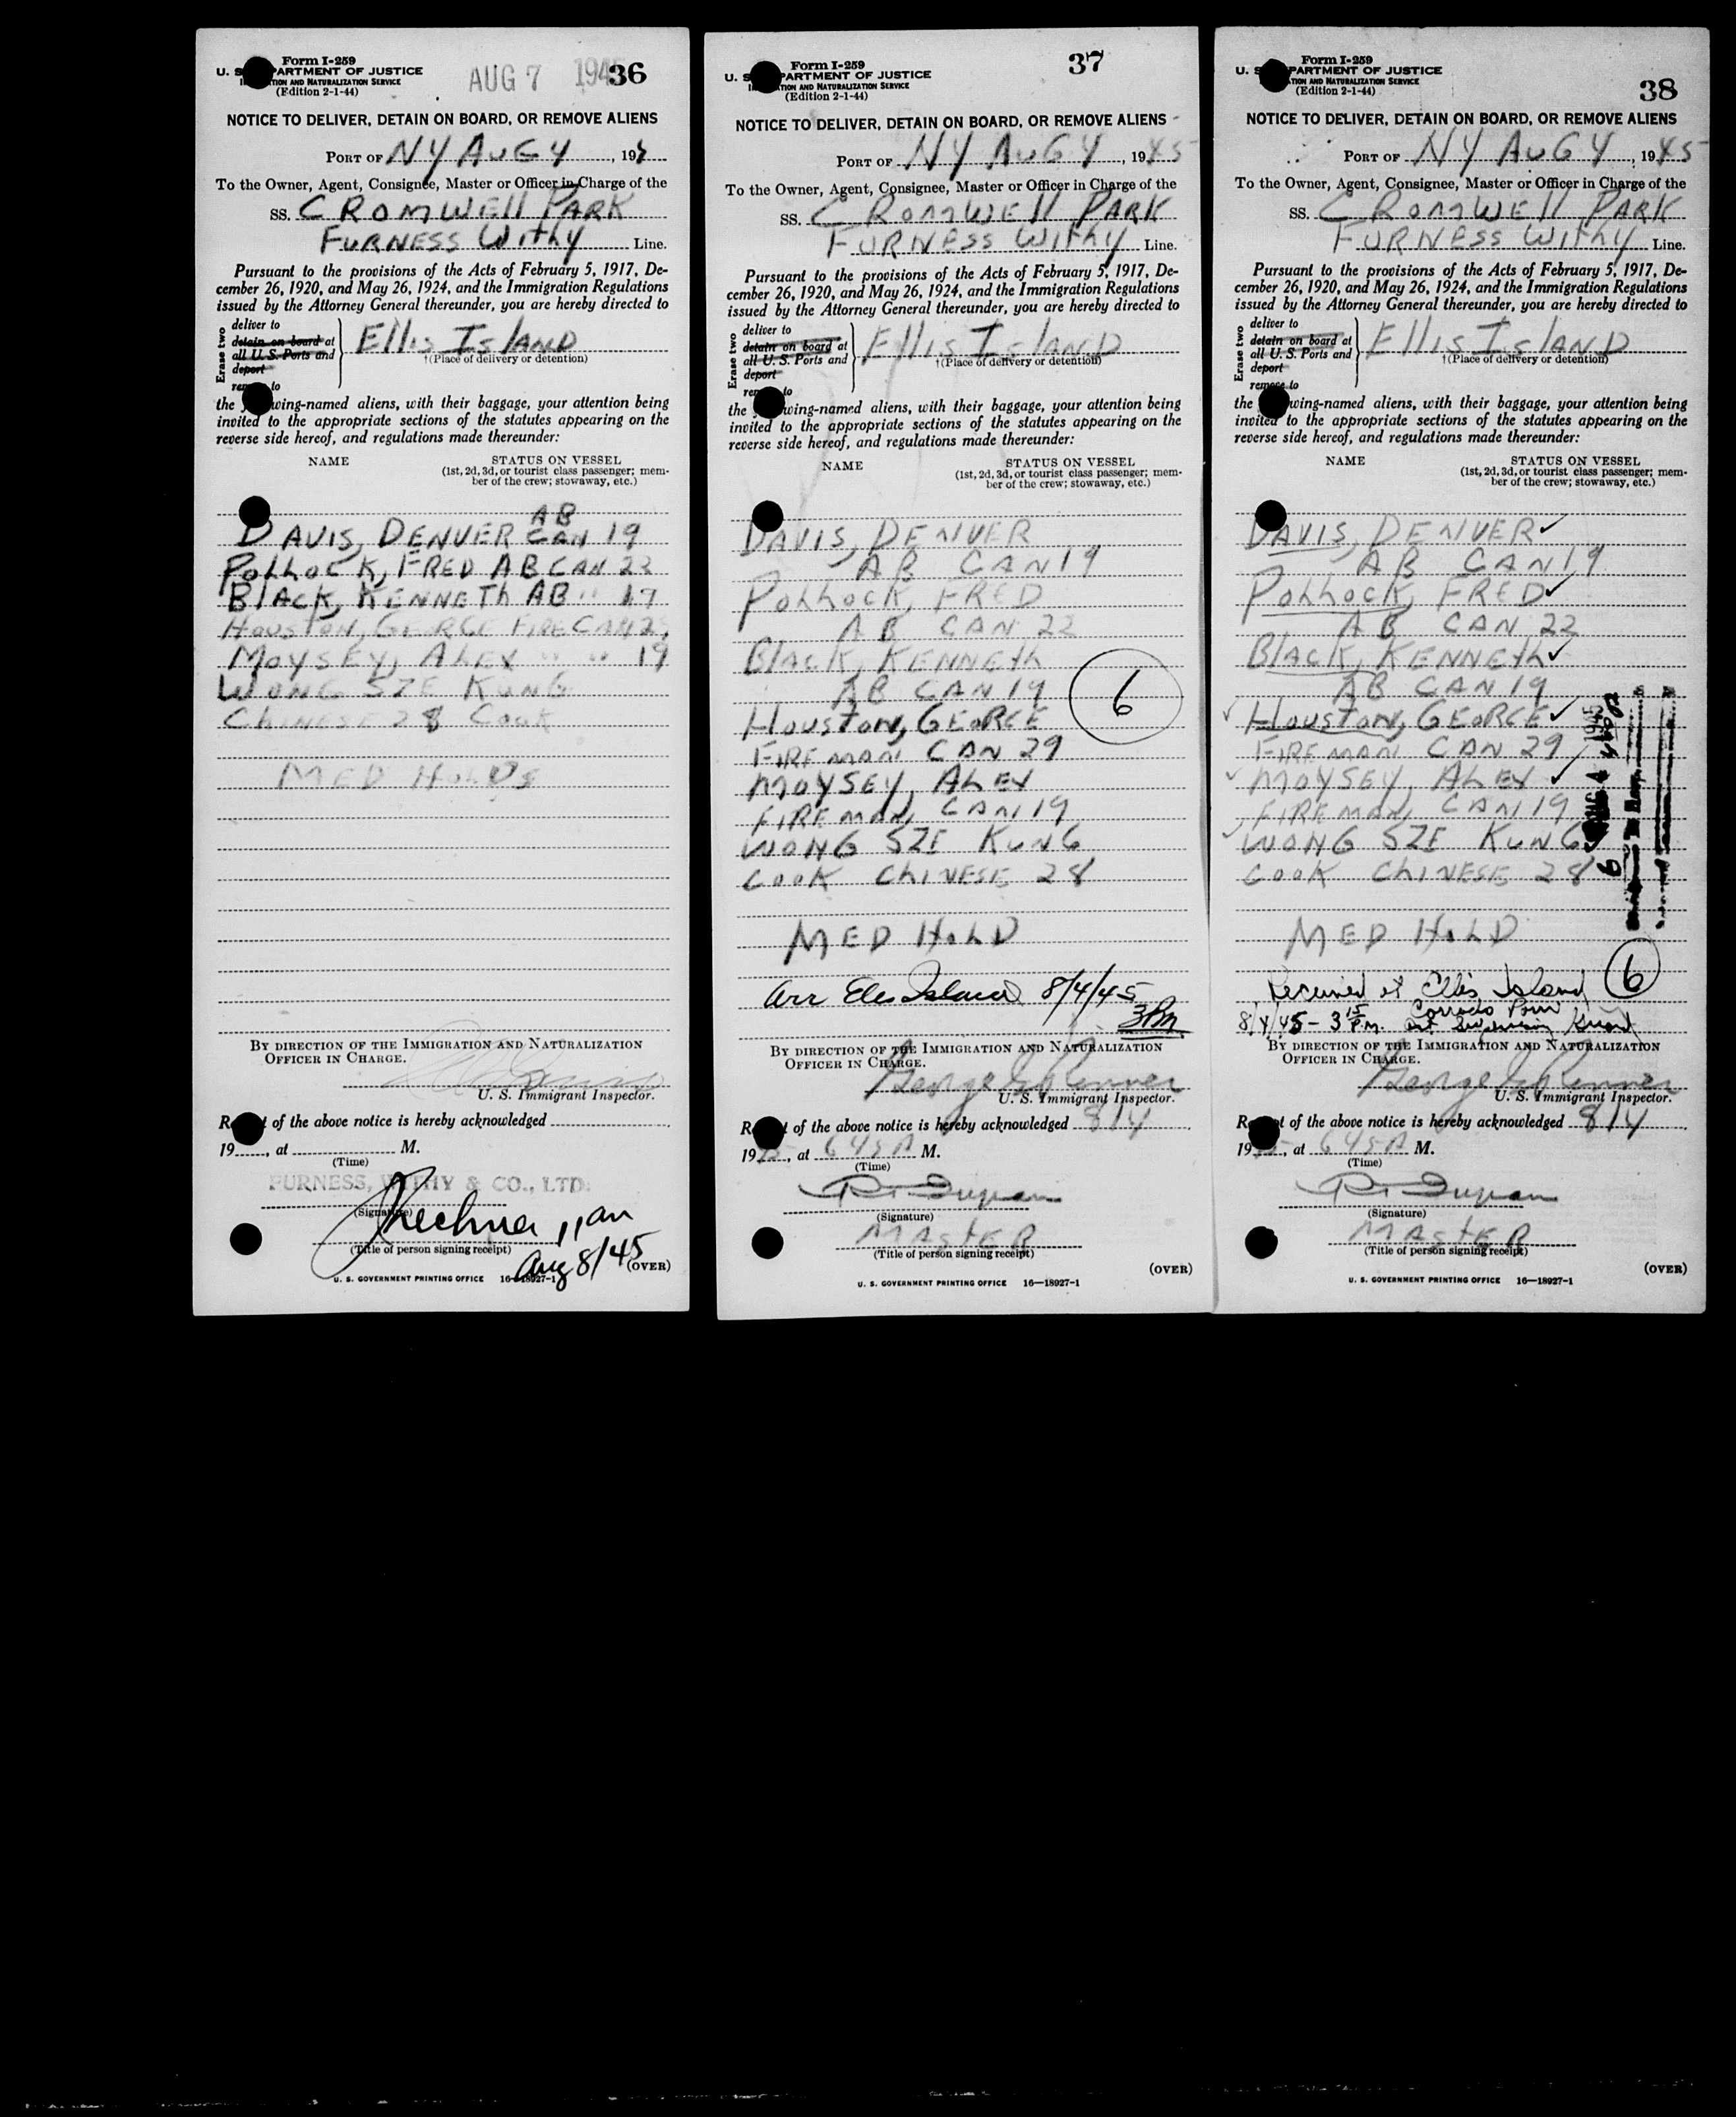 Form I-259
U. S. DEPARTMENT OF JUSTICE
IMMIGRATION AND NATURALIZATION SERVICE
(Edition 2-1-44)
AUG 7 1945
36
NOTICE TO DELIVER, DETAIN ON BOARD, OR REMOVE ALIENS
PORT OF NY AUG 4, 194
To the Owner, Agent, Consignee, Master or Officer in Charge of the
SS. CROMWEll PARK
FURNESS WithY Line.
Pursuant to the provisions of the Acts of February 5, 1917, De-
cember 26, 1920, and May 26, 1924, and the Immigration Regulations
issued by the Attorney General thereunder, you are hereby directed to
Erase two
deliver to
detain on board at
all U. S. Ports and
deport
remove to
Ellis IslAND
†(Place of delivery or detention)
the following-named aliens, with their baggage, your attention being
invited to the appropriate sections of the statutes appearing on the
reverse side hereof, and regulations made thereunder:
NAME STATUS ON VESSEL
(1st, 2d, 3d, or tourist class passenger; mem-
ber of the crew; stowaway, etc.)
AB
DAVIS, DENVER CAN 19
POLLOCK, FRED AB CAN 22
BlACK, KENNETh AB " 19
HOUSTON, GEORGE FIRE CAN 29
MOYSEY, ALEX " " 19
WONG SZE KUNG
ChINESE 28 COOK
MED HOLDS
BY DIRECTION OF THE IMMIGRATION AND NATURALIZATION
OFFICER IN CHARGE.
U. S. Immigrant Inspector.
Receipt of the above notice is hereby acknowledged
19, at M.
(Time)
FURNESS, WITHY & CO., LTD.
(Signature)
(Title of person signing receipt)
Aug 8/45
(OVER)
U. S. GOVERNMENT PRINTING OFFICE 16—18927-1
Form I-259
U. S. DEPARTMENT OF JUSTICE
IMMIGRATION AND NATURALIZATION SERVICE
(Edition 2-1-44)
37
NOTICE TO DELIVER, DETAIN ON BOARD, OR REMOVE ALIENS
PORT OF NY AUG 4, 1945
To the Owner, Agent, Consignee, Master or Officer in Charge of the
SS. CROMWEll PARK
FURNESS WithY Line.
Pursuant to the provisions of the Acts of February 5, 1917, De-
cember 26, 1920, and May 26, 1924, and the Immigration Regulations
issued by the Attorney General thereunder, you are hereby directed to
Erase two
deliver to
detain on board at
all U. S. Ports and
deport
remove to
Ellis IslAND
†(Place of delivery or detention)
the following-named aliens, with their baggage, your attention being
invited to the appropriate sections of the statutes appearing on the
reverse side hereof, and regulations made thereunder:
NAME STATUS ON VESSEL
(1st, 2d, 3d, or tourist class passenger; mem-
ber of the crew; stowaway, etc.)
DAVIS, DENVER
AB CAN 19
POLLOCK, FRED
AB CAN 22
BlACK, KENNETh
AB CAN 19
6
HOUSTON, GEORGE
FIREMAN CAN 29
MOYSEY, ALEX
FIREMAN, CAN 19
WONG SZE KUNG
COOK ChINESE 28
MED HOLD
Arr Ellis Island 8/4/45
3 Pm
BY DIRECTION OF THE IMMIGRATION AND NATURALIZATION
OFFICER IN CHARGE.
George
U. S. Immigrant Inspector.
Receipt of the above notice is hereby acknowledged 8/4
1945, at 645 A M.
(Time)
(Signature)
MASTER
(Title of person signing receipt)
(OVER)
U. S. GOVERNMENT PRINTING OFFICE 16—18927-1
Form I-259
U. S. DEPARTMENT OF JUSTICE
IMMIGRATION AND NATURALIZATION SERVICE
(Edition 2-1-44)
38
NOTICE TO DELIVER, DETAIN ON BOARD, OR REMOVE ALIENS
PORT OF NY AUG 4, 1945
To the Owner, Agent, Consignee, Master or Officer in Charge of the
SS. CROMWEll PARK
FURNESS WithY Line.
Pursuant to the provisions of the Acts of February 5, 1917, De-
cember 26, 1920, and May 26, 1924, and the Immigration Regulations
issued by the Attorney General thereunder, you are hereby directed to
Erase two
deliver to
detain on board at
all U. S. Ports and
deport
remove to
Ellis IslAND
†(Place of delivery or detention)
the following-named aliens, with their baggage, your attention being
invited to the appropriate sections of the statutes appearing on the
reverse side hereof, and regulations made thereunder:
NAME STATUS ON VESSEL
(1st, 2d, 3d, or tourist class passenger; mem-
ber of the crew; stowaway, etc.)
DAVIS, DENVER ✓
AB CAN 19
POLLOCK, FRED ✓
AB CAN 22
BlACK, KENNETh ✓
AB CAN 19
✓ HOUSTON, GEORGE ✓
FIREMAN CAN 29
✓ MOYSEY, ALEX ✓
FIREMAN, CAN 19
✓ WONG SZE KUNG ✓
COOK ChINESE 28
MED HOLD
6
Received at Ellis Island
8/4/45 - 3 15 P.M.
BY DIRECTION OF THE IMMIGRATION AND NATURALIZATION
OFFICER IN CHARGE.
George
U. S. Immigrant Inspector.
Receipt of the above notice is hereby acknowledged 8/4
1945, at 645 A M.
(Time)
(Signature)
MASTER
(Title of person signing receipt)
(OVER)
U. S. GOVERNMENT PRINTING OFFICE 16—18927-1